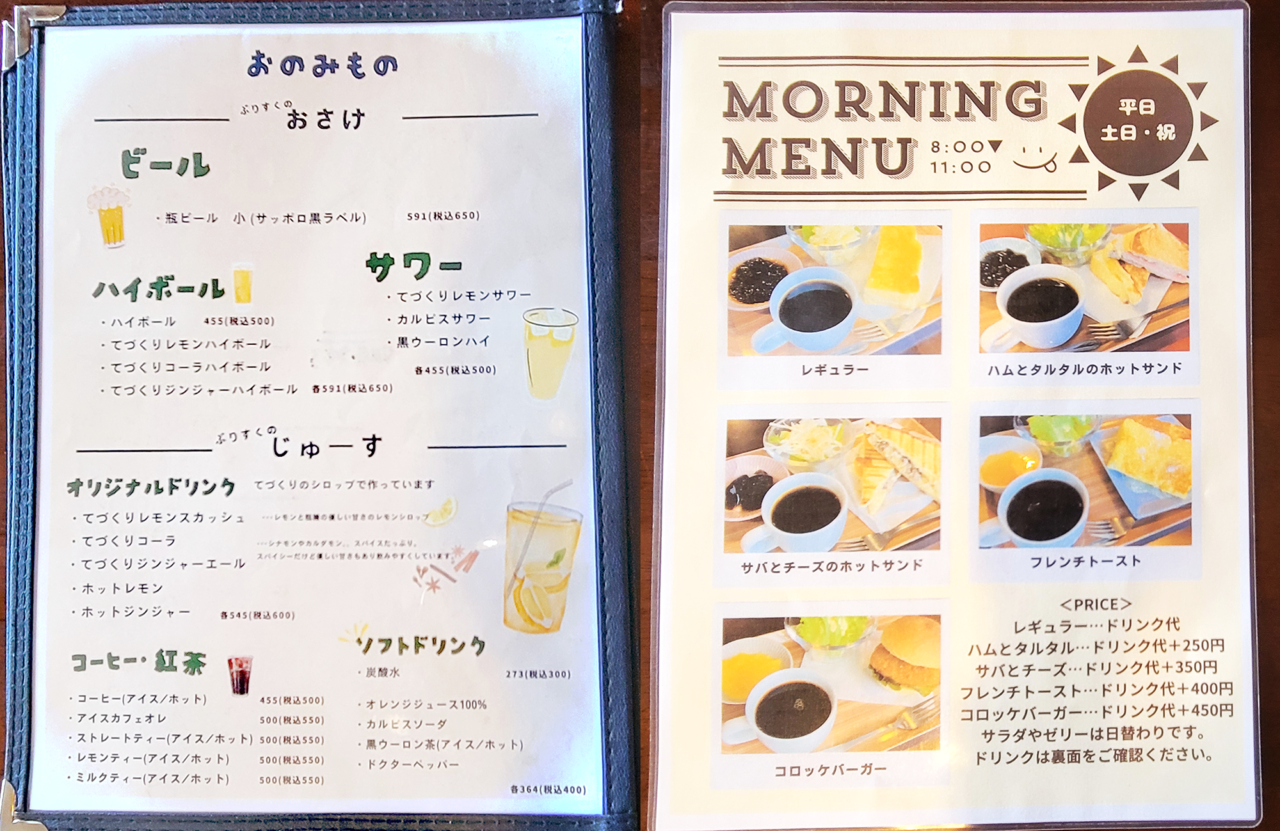 おのみもの
ぷりすくの
おさけ
ビール
・瓶ビール 小 (サッポロ黒ラベル) 591(税込650)
ハイボール
・ハイボール 455(税込500)
・てづくりレモンハイボール
・てづくりコーラハイボール
・てづくりジンジャーハイボール 各591(税込650)
サワー
・てづくりレモンサワー
・カルピスサワー
・黒ウーロンハイ
各455(税込500)
ぷりすくの
じゅーす
オリジナルドリンク てづくりのシロップで作っています
・てづくりレモンスカッシュ ・・・レモンと甜糖の優しい甘さのレモンシロップ
・てづくりコーラ ・・・シナモンやカルダモン、、スパイスたっぷり。
スパイシーだけど優しい甘さもあり飲みやすくしています。
・てづくりジンジャーエール
・ホットレモン
・ホットジンジャー 各545(税込600)
コーヒー・紅茶
・コーヒー(アイス/ホット) 455(税込500)
・アイスカフェオレ 500(税込550)
・ストレートティー(アイス/ホット) 500(税込550)
・レモンティー(アイス/ホット) 500(税込550)
・ミルクティー(アイス/ホット) 500(税込550)
ソフトドリンク
・炭酸水 273(税込300)
・オレンジジュース100%
・カルピスソーダ
・黒ウーロン茶(アイス/ホット)
・ドクターペッパー
各364(税込400)
MORNING
MENU
8:00▼
11:00
平日
土日・祝
レギュラー
ハムとタルタルのホットサンド
サバとチーズのホットサンド
フレンチトースト
コロッケバーガー
＜PRICE＞
レギュラー…ドリンク代
ハムとタルタル…ドリンク代＋250円
サバとチーズ…ドリンク代＋350円
フレンチトースト…ドリンク代＋400円
コロッケバーガー…ドリンク代＋450円
サラダやゼリーは日替わりです。
ドリンクは裏面をご確認ください。